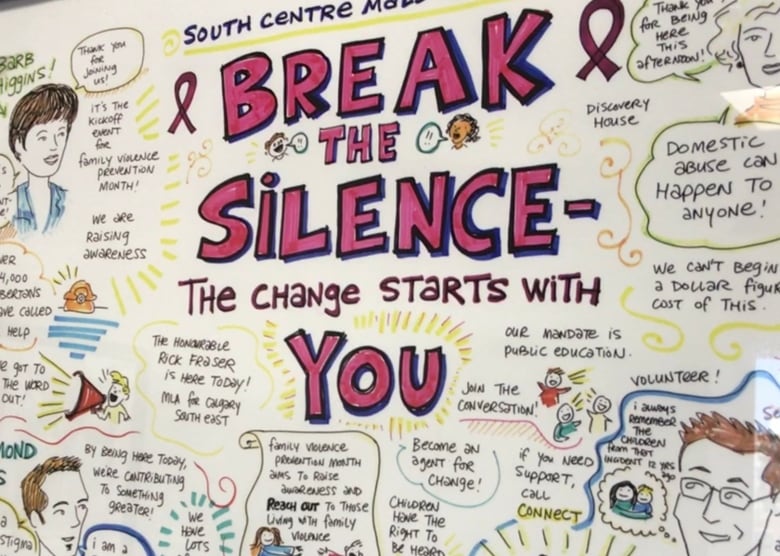 SOUTH CENTRE MALL
BREAK
THE
SILENCE-
THE CHANGE STARTS WITH
YOU
BARB
HIGGINS!
THANK YOU
for
JOINING
US!
IT'S THE
KICKOFF
EVENT
for
family violence
PREVENTION
MONTH!
WE ARE
RAISING
AWARENESS
THANK YOU
for BEING
HERE
THIS
AFTERNOON!
DISCOVERY
HOUSE
DOMESTIC
ABUSE CAN
HAPPEN TO
ANYONE!
WE CAN'T BEGIN
A DOLLAR figur
COST OF THIS.
4,000
BERTANS
AVE CALLED
HELP
GOT TO
THE WORD
OUT!
THE HONOURABLE
RICK FRASER
IS HERE TODAY!
MLA for CALGARY
SOUTH EAST
OUR MANDATE IS
PUBLIC EDUCATION.
JOIN THE
CONVERSATION!
VOLUNTEER!
i ALWAYS
REMEMBER
THE
CHILDREN
from THAT
INCIDENT 12 YRS
AGO
MOND
BY BEING HERE TODAY,
WE'RE CONTRIBUTING
TO SOMETHING
GREATER!
family violence
PREVENTION MONTH
AIMS TO RAISE
AWARENESS AND
REACH OUT TO THOSE
LIVING WITH family
VIOLENCE
BECOME AN
AGENT FOR
CHANGE!
if YOU NEED
SUPPORT,
CALL
CONNECT
CHILDREN
HAVE THE
RIGHT TO
BE HEARD
WE
HAVE
LOTS
i am a
STIGMA